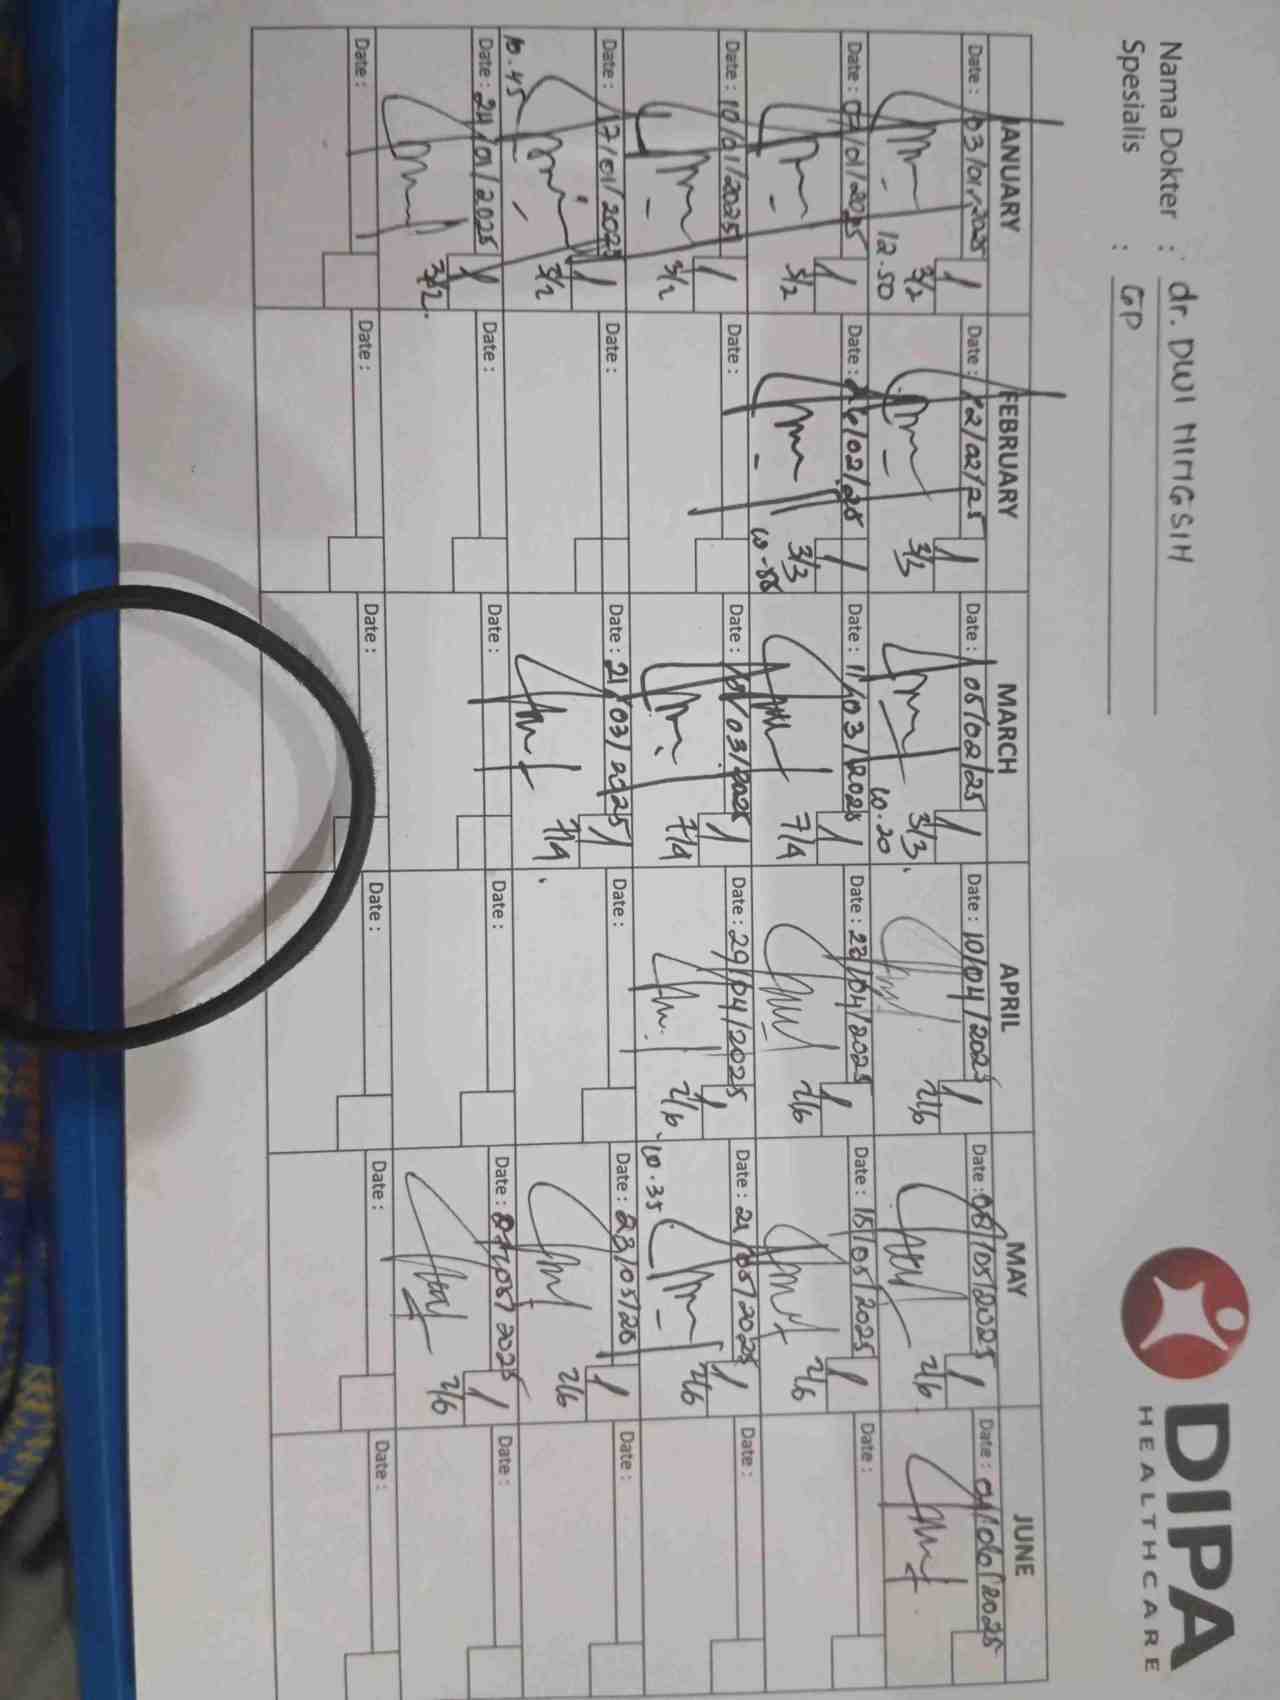 Nama Dokter : dr. DWI HINGSIH
Spesialis : GP
DIPA
HEALTHCARE
JANUARY FEBRUARY MARCH APRIL MAY JUNE
Date : 03/01/2025 1 Date : 12/02/25 1 Date : 05/02/25 1 Date : 10/04/2025 1 Date : 08/05/2025 1 Date : 04/06/2025
12.50 3/2 3/3 10.20 3/3 2/6 2/6
Date : 07/01/2025 1 Date : 26/02/25 1 Date : 11/03/2025 1 Date : 22/04/2025 1 Date : 15/05/2025 1 Date :
3/2 3/3 7/4 2/6 2/6
Date : 10/01/2025 1 Date : Date : /03/2025 1 Date : 29/04/2025 1 Date : 21/05/2025 1 Date :
3/2 7/4 2/6 10.35 2/6
Date : 17/01/2025 1 Date : Date : 21/03/2025 1 Date : Date : 23/05/25 1 Date :
10.45 3/2 7/4 2/6
Date : 24/01/2025 1 Date : Date : Date : Date : /05/2025 1 Date :
3/2 2/6
Date : Date : Date : Date : Date : Date :